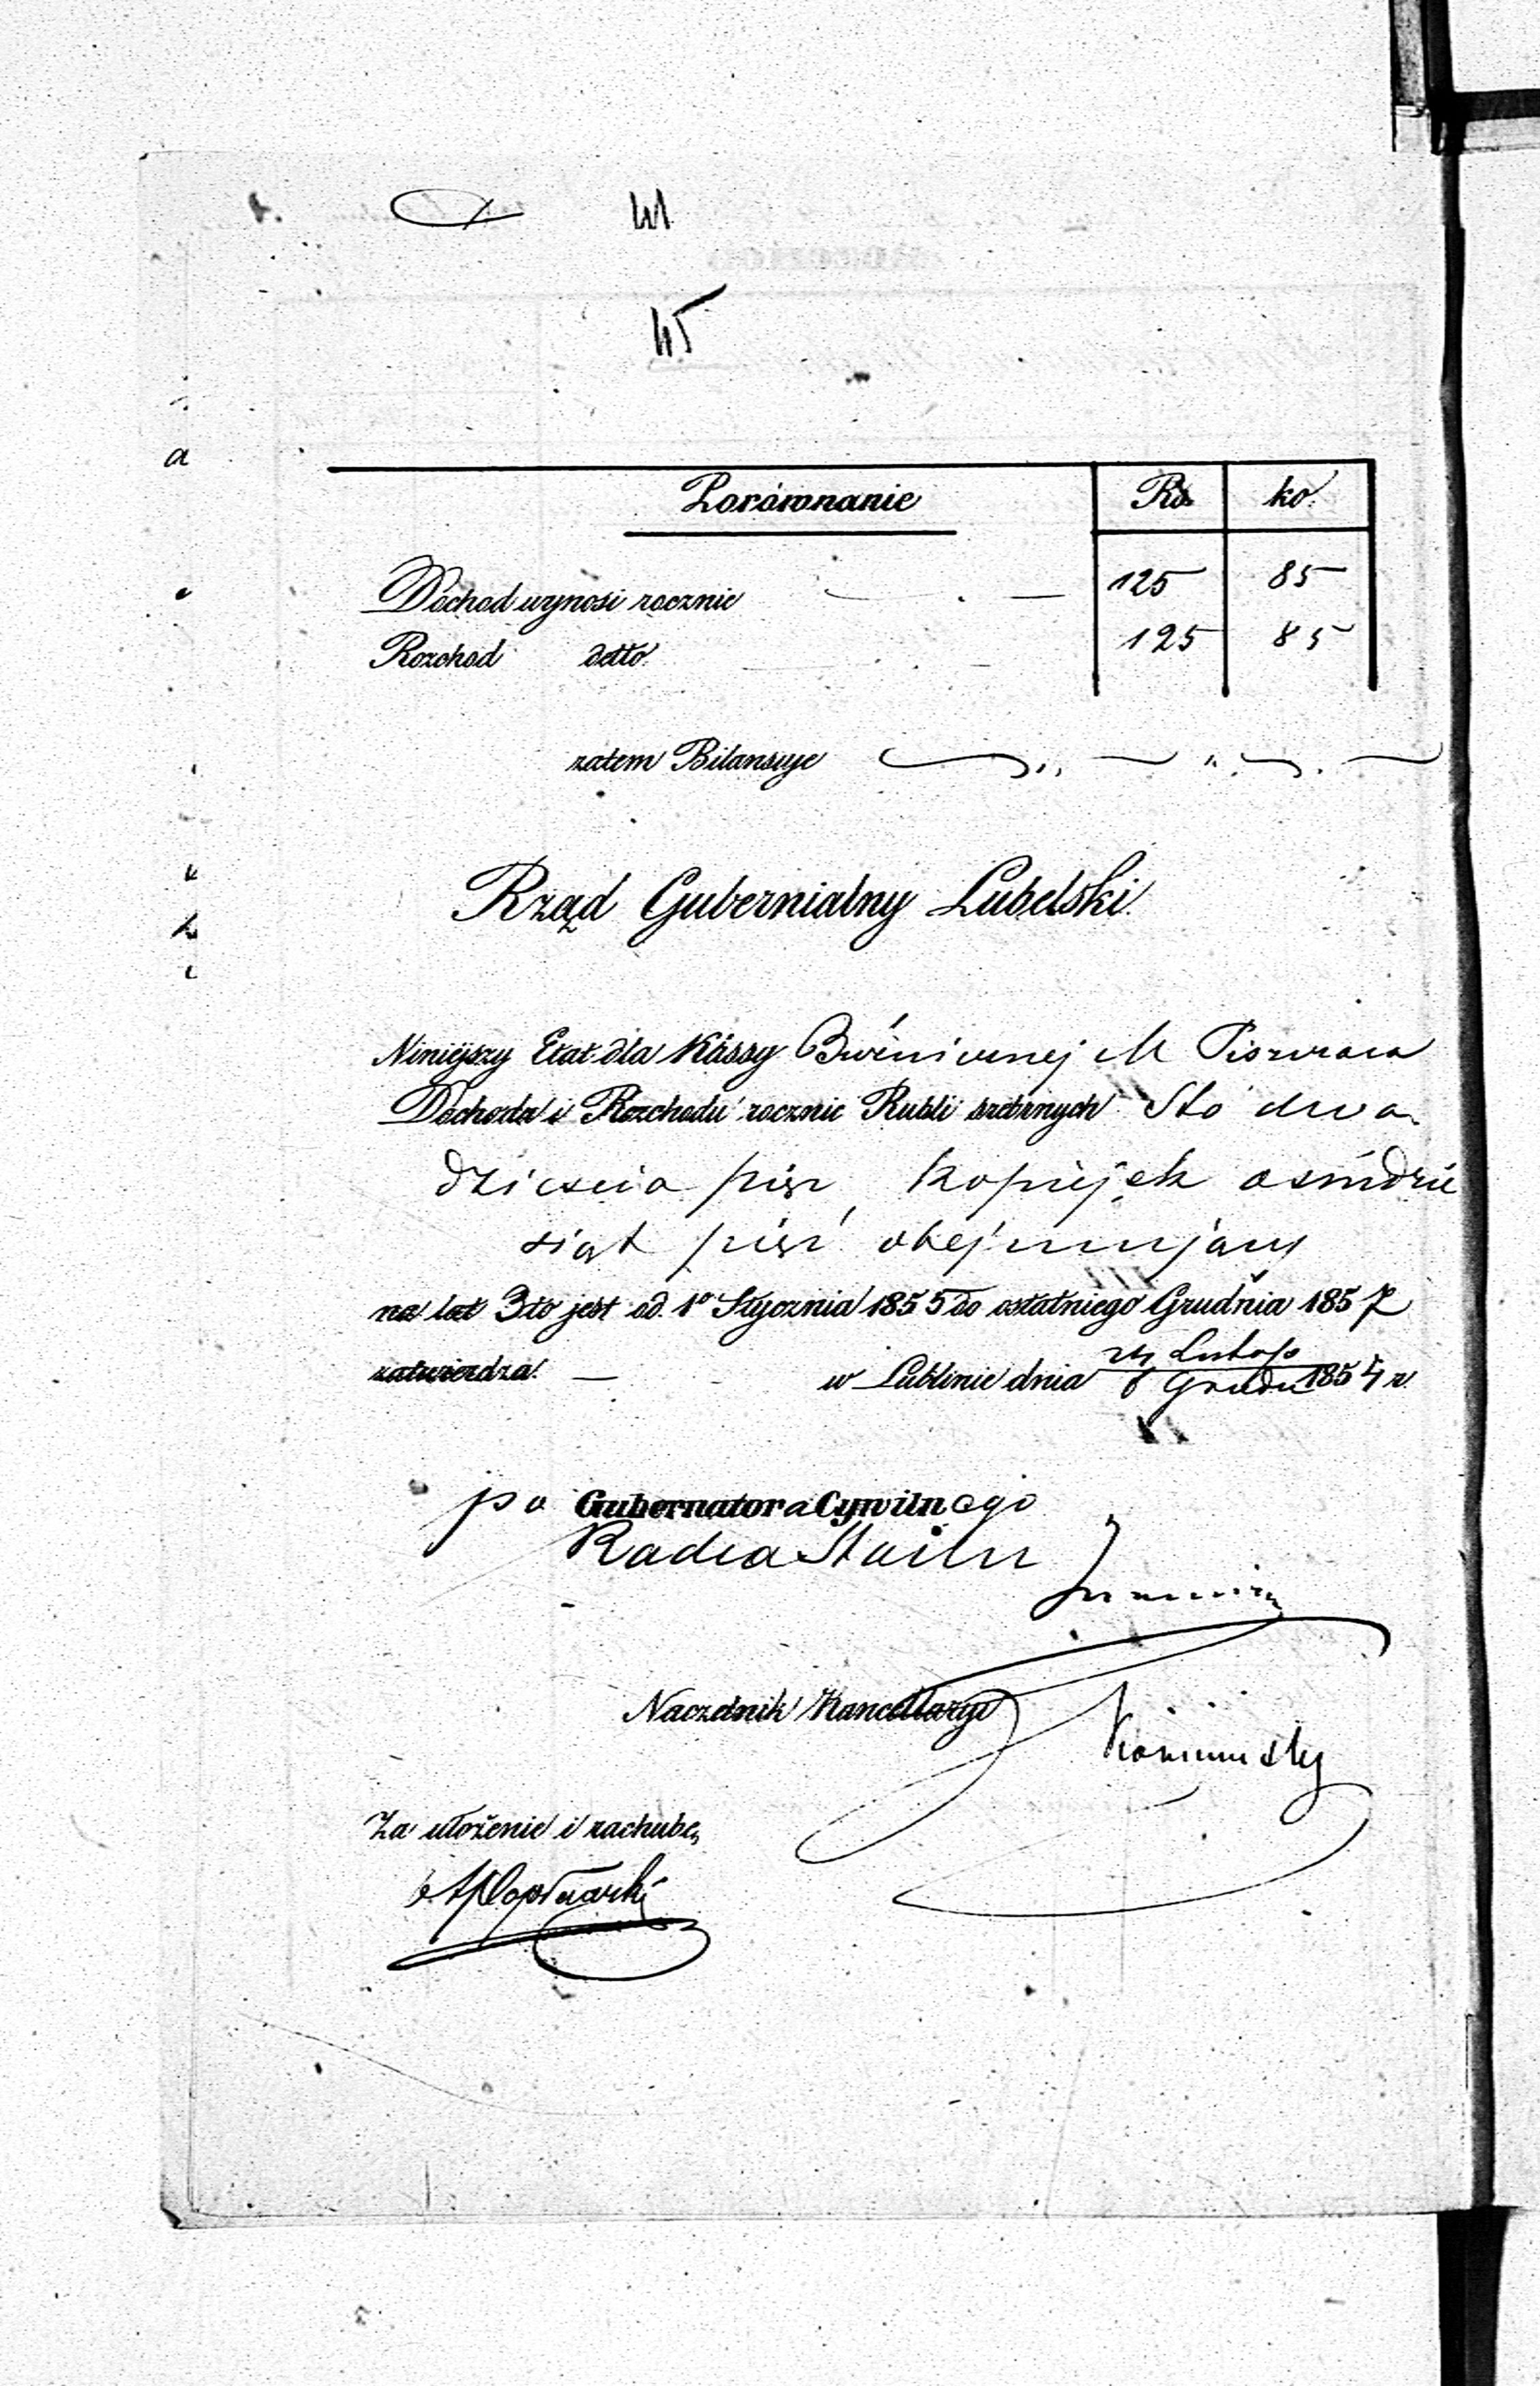 41
45
Porównanie Rs. ko.
Dochod wynosi rocznie 125 85
Rozchod detto 125 85
zatem Bilansuje
Rząd Gubernialny Lubelski.
Niniejszy Etat dla Kassy Bużnicznej M
Dochodu i Rozchodu rocznie Rubli srebrnych Sto dwa
dzieścia pięć kopiejek ośmdzie
siąt pięć obejmujący
na lat 3 to jest od 1o Stycznia 1855 do ostatniego Grudnia 1857
zatwierdza. w Lublinie dnia Grudn 1854 r.
po Gubernatora Cywilnego
Radca Stanu
Naczelnik Kancellaryi
Za ułożenie i rachubę